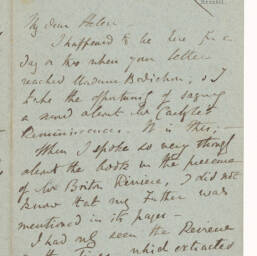 My dear Helen
I happened to be here for a
day or two when your letter
reached Madame Bodichon, & I
take the opportunity of saying
a word about Mr Carlyle's
Reminiscences. It is this;
When I spoke so very strongly
about the book in the presence
of Mr Briton Riviere, I did not
know that my Father was
mentioned in its pages—
I had only seen the Reviews
in the Times, which extracted